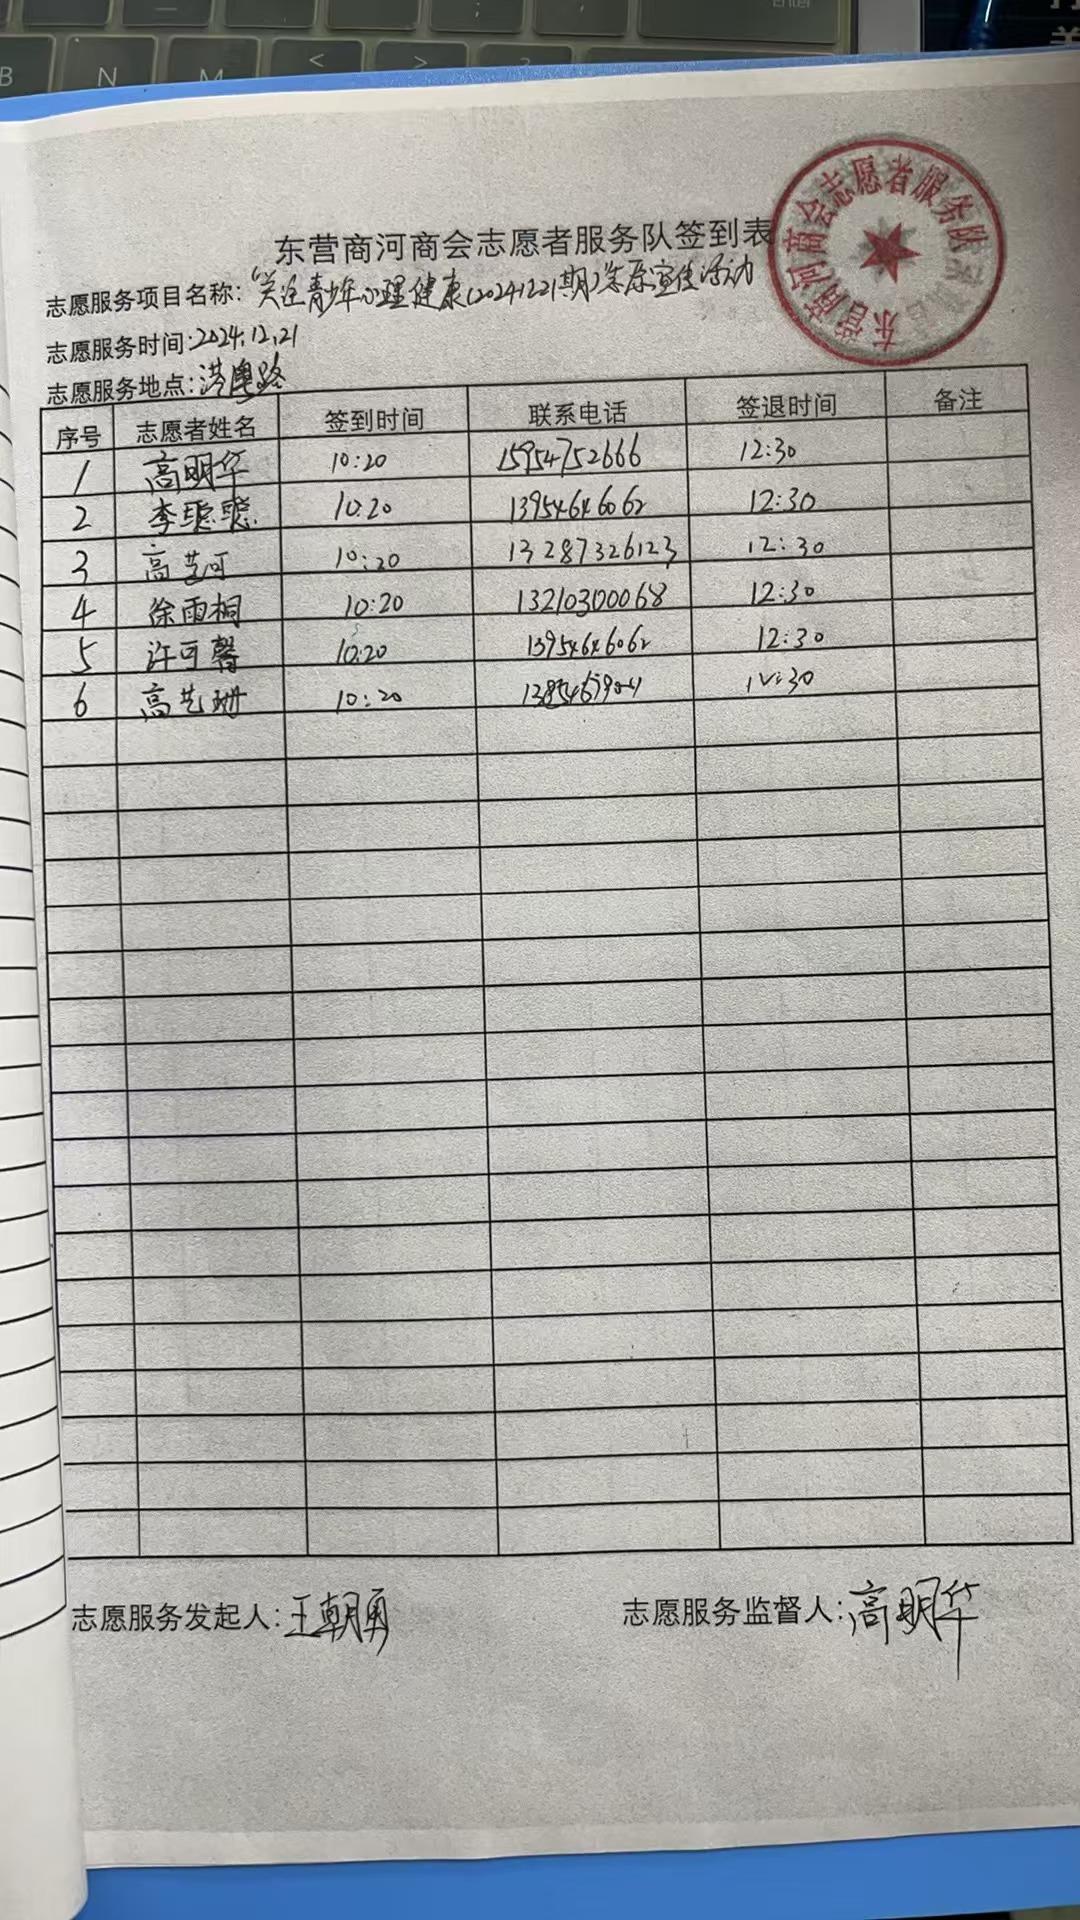 Enter
B N M < > ?
东营商河商会志愿者服务队
东营商河商会志愿者服务队签到表
志愿服务项目名称:“关注青少年心理健康(20241221期)”志愿宣传活动
志愿服务时间:2024.12.21
志愿服务地点:
序号 志愿者姓名 签到时间 联系电话 签退时间 备注
1 高明华 10:20 15954752666 12:30
2 李聪聪 10:20 13954646062 12:30
3 高艺可 10:20 13287326123 12:30
4 徐雨桐 10:20 13210300068 12:30
5 许可馨 10:20 13954646062 12:30
6 高艺珊 10:20 12:30
志愿服务发起人:王朝勇 志愿服务监督人:高明华